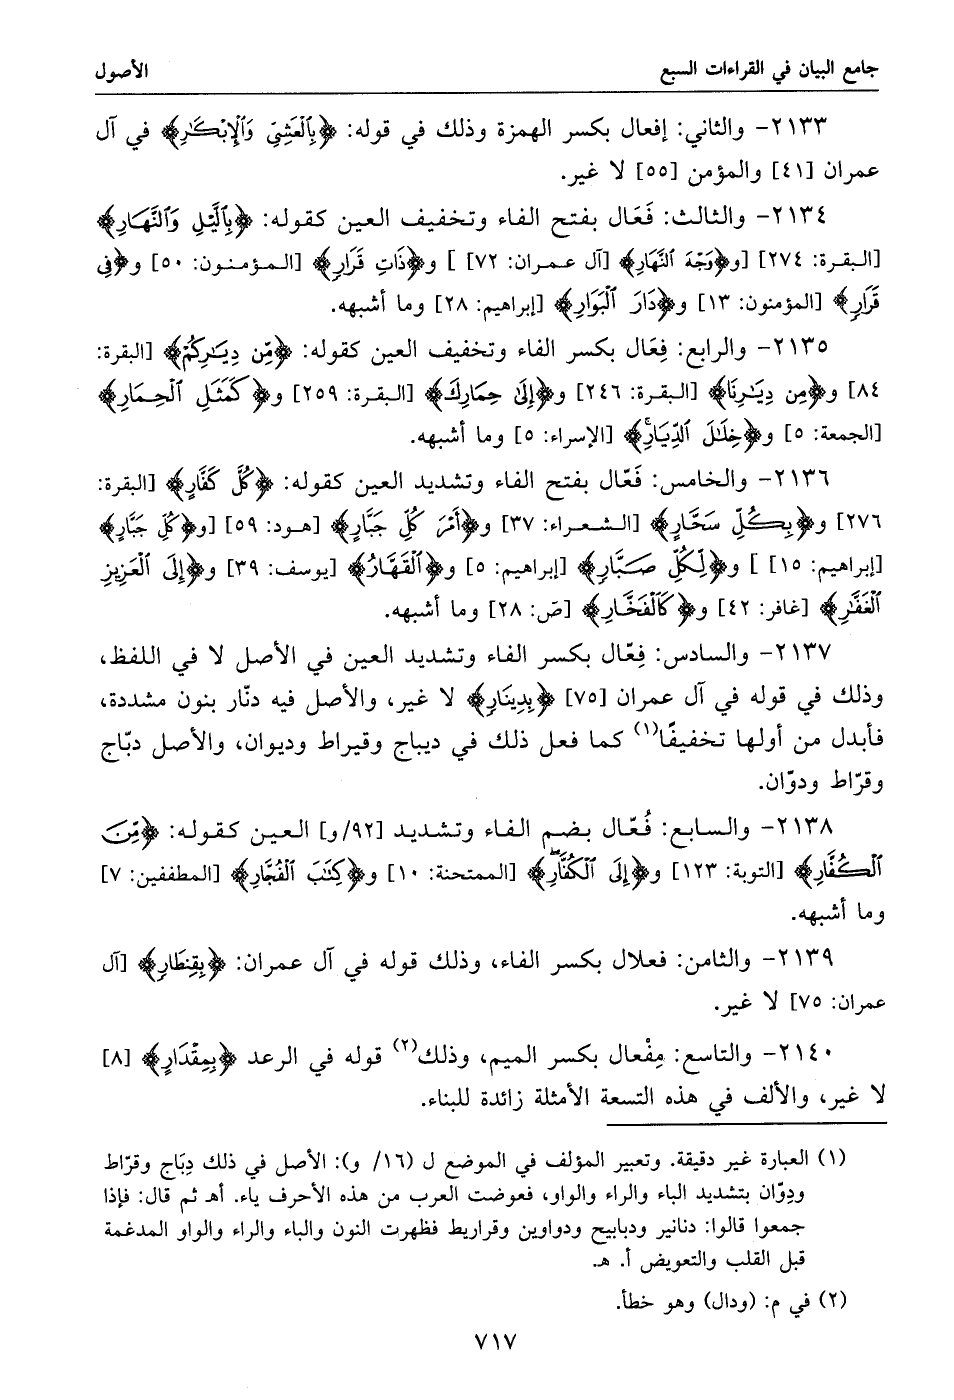 جامع البيان في القراءات السبع
الأصول
٢١٣٣- والثاني: إفعال بكسر الهمزة وذلك في قوله: ﴿بِٱلۡعَشِيِّ وَٱلۡإِبۡكَٰرِ﴾ في آل
عمران [٤١] والمؤمن [٥٥] لا غير.
٢١٣٤- والثالث: فَعَال بفتح الفاء وتخفيف العين كقوله: ﴿بِٱلَّيۡلِ وَٱلنَّهَارِ﴾
[البقرة: ٢٧٤] [و﴿وَجۡهَ ٱلنَّهَارِ﴾ [آل عمران: ٧٢] ] و﴿ذَاتِ قَرَارٖ﴾ [المؤمنون: ٥٠] و﴿فِي
قَرَارٖ﴾ [المؤمنون: ١٣] و﴿دَارَ ٱلۡبَوَارِ﴾ [إبراهيم: ٢٨] وما أشبهه.
٢١٣٥- والرابع: فِعَال بكسر الفاء وتخفيف العين كقوله: ﴿مِّن دِيَٰرِكُمۡ﴾ [البقرة:
٨٤] و﴿مِن دِيَٰرِنَا﴾ [البقرة: ٢٤٦] و﴿إِلَىٰ حِمَارِكَ﴾ [البقرة: ٢٥٩] و﴿كَمَثَلِ ٱلۡحِمَارِ﴾
[الجمعة: ٥] و﴿خِلَٰلَ ٱلدِّيَارِۚ﴾ [الإسراء: ٥] وما أشبهه.
٢١٣٦- والخامس: فَعّال بفتح الفاء وتشديد العين كقوله: ﴿كُلَّ كَفَّارٍ﴾ [البقرة:
٢٧٦] و﴿بِكُلِّ سَحَّارٍ﴾ [الشعراء: ٣٧] و﴿أَمۡرَ كُلِّ جَبَّارٍ﴾ [هود: ٥٩] [و﴿كُلُّ جَبَّارٍ﴾
[إبراهيم: ١٥] ] و﴿لِّكُلِّ صَبَّارٖ﴾ [إبراهيم: ٥] و﴿ٱلۡقَهَّارُ﴾ [يوسف: ٣٩] و﴿إِلَى ٱلۡعَزِيزِ
ٱلۡغَفَّٰرِ﴾ [غافر: ٤٢] و﴿كَٱلۡفَخَّارِ﴾ [صَ: ٢٨] وما أشبهه.
٢١٣٧- والسادس: فِعّال بكسر الفاء وتشديد العين في الأصل لا في اللفظ،
وذلك في قوله في آل عمران [٧٥] ﴿بِدِينَارٖ﴾ لا غير، والأصل فيه دنّار بنون مشددة،
فأبدل من أولها تخفيفًا(١) كما فعل ذلك في ديباج وقيراط وديوان، والأصل دبّاج
وقرّاط ودوّان.
٢١٣٨- والسابع: فُعّال بضم الفاء وتشديد [٩٢/و] العين كقوله: ﴿مِّنَ
ٱلۡكُفَّارِ﴾ [التوبة: ١٢٣] و﴿إِلَى ٱلۡكُفَّارِۖ﴾ [الممتحنة: ١٠] و﴿كِتَٰبَ ٱلۡفُجَّارِ﴾ [المطففين: ٧]
وما أشبهه.
٢١٣٩- والثامن: فعلال بكسر الفاء، وذلك قوله في آل عمران: ﴿بِقِنطَارٖ﴾ [آل
عمران: ٧٥] لا غير.
٢١٤٠- والتاسع: مِفْعال بكسر الميم، وذلك(٢) قوله في الرعد ﴿بِمِقۡدَارٍ﴾ [٨]
لا غير، والألف في هذه التسعة الأمثلة زائدة للبناء.
(١) العبارة غير دقيقة. وتعبير المؤلف في الموضع ل (١٦/ و): الأصل في ذلك دِبَاج وقرّاط
ودِوّان بتشديد الباء والراء والواو، فعوضت العرب من هذه الأحرف ياء. أهـ ثم قال: فإذا
جمعوا قالوا: دنانير ودبابيح ودواوين وقراريط فظهرت النون والباء والراء والواو المدغمة
قبل القلب والتعويض أ. هـ.
(٢) في م: (ودال) وهو خطأ.
٧١٧